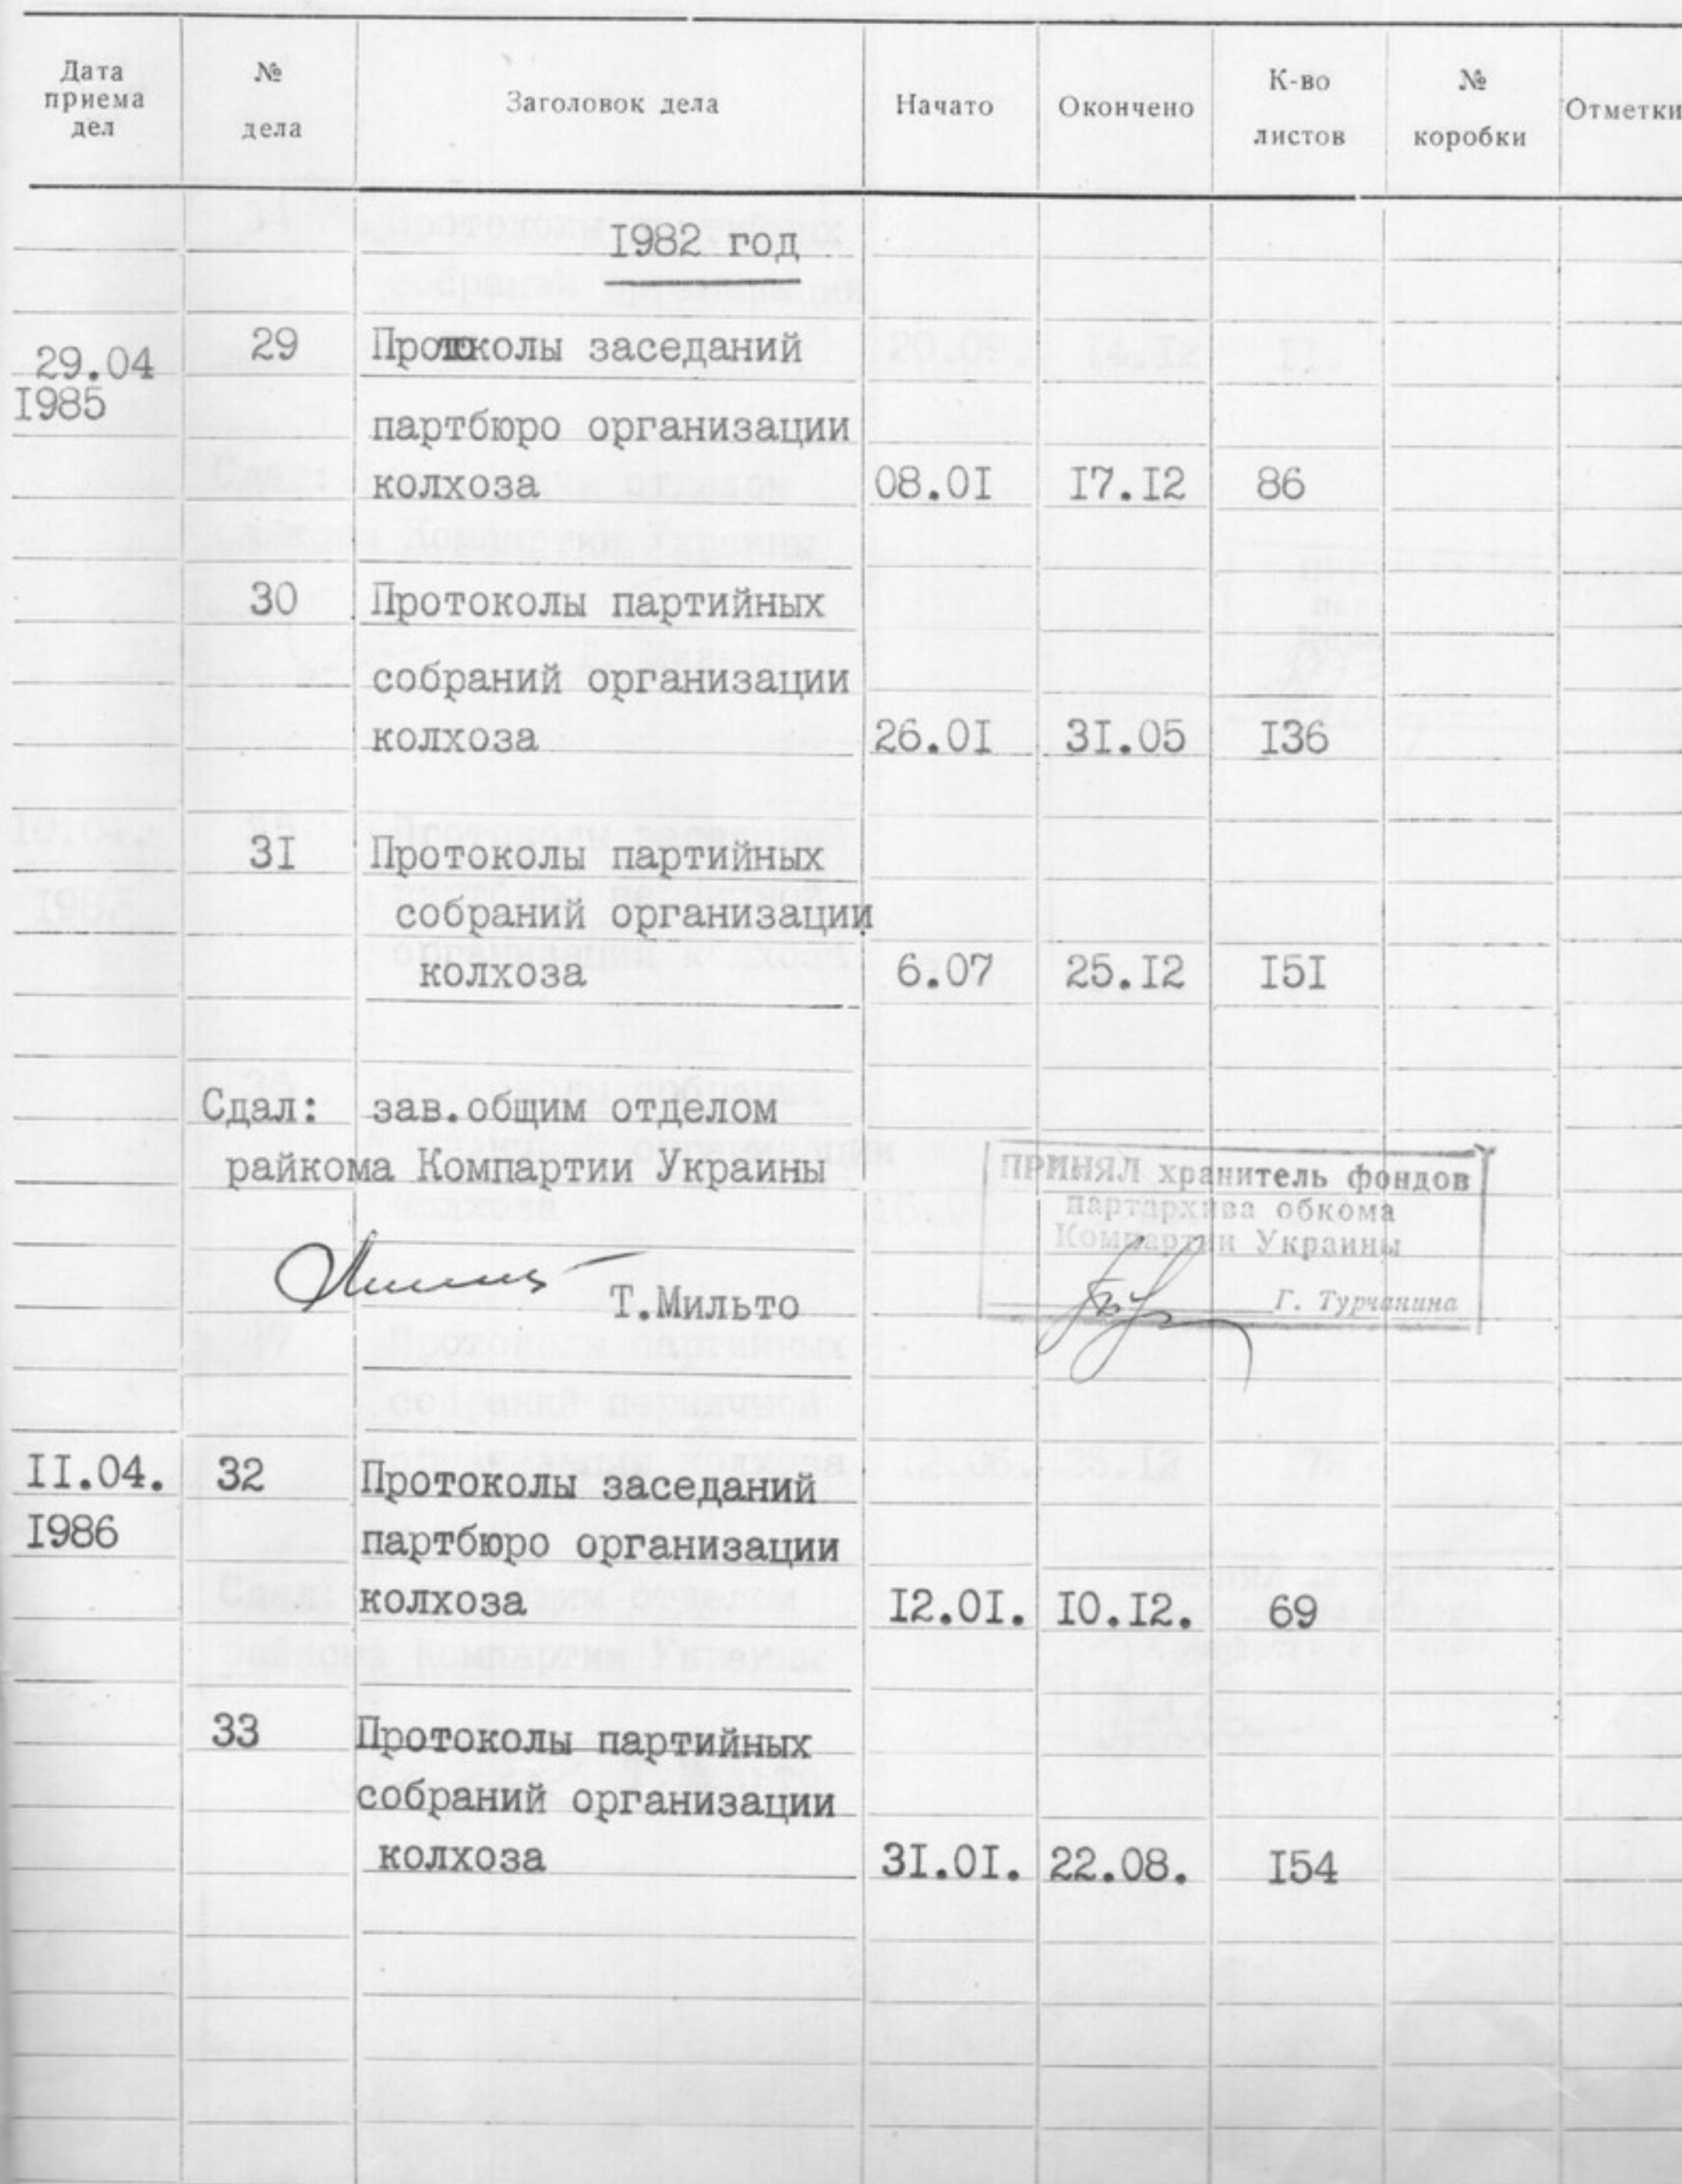 Дата приема дел № дела Заголовок дела Начато Окончено К-во листов № коробки Отметки
1982 год
29.04 29 Протоколы заседаний
1985
партбюро организации
колхоза 08.01 17.12 86
30 Протоколы партийных
собраний организации
колхоза 26.01 31.05 136
31 Протоколы партийных
собраний организации
колхоза 6.07 25.12 151
Сдал: зав.общим отделом
райкома Компартии Украины
ПРИНЯЛ хранитель фондов
партархива обкома
Компартии Украины
Т.Мильто
Г. Турчанина
11.04. 32 Протоколы заседаний
1986 партбюро организации
колхоза 12.01. 10.12. 69
33 Протоколы партийных
собраний организации
колхоза 31.01. 22.08. 154